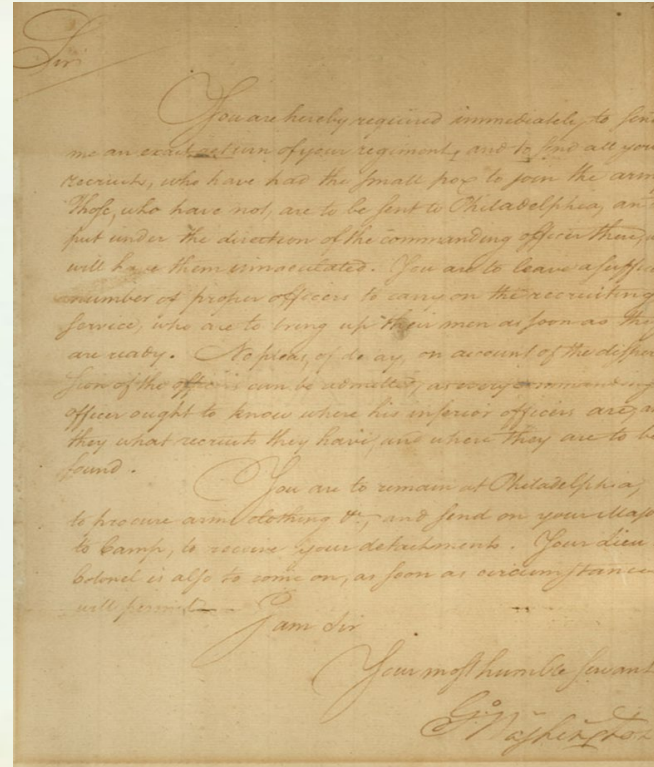 Sir
You are hereby required immediately to send
me an exact return of your regiment, and to send all you
recruits, who have had the small pox to join the arm
Those, who have not, are to be sent to Philadelphia, and
put under the direction of the commanding officer there,
will have them innoculated. You are to leave a suffic
number of proper officers to carry on the recruiting
service, who are to bring up their men as soon as they
are ready. No pleas, of delay, on account of the disper
sion of the officers can be admitted, as every commanding
officer ought to know where his inferior officers are, a
they what recruits they have, and where they are to be
found.
You are to remain at Philadelphia,
to procure arms, clothing &c, and send on your Majo
to Camp, to receive your detachments. Your Lieu
Colonel is also to come on, as soon as circumstance
will permit
I am Sir
Your most humble servant
Go Washington